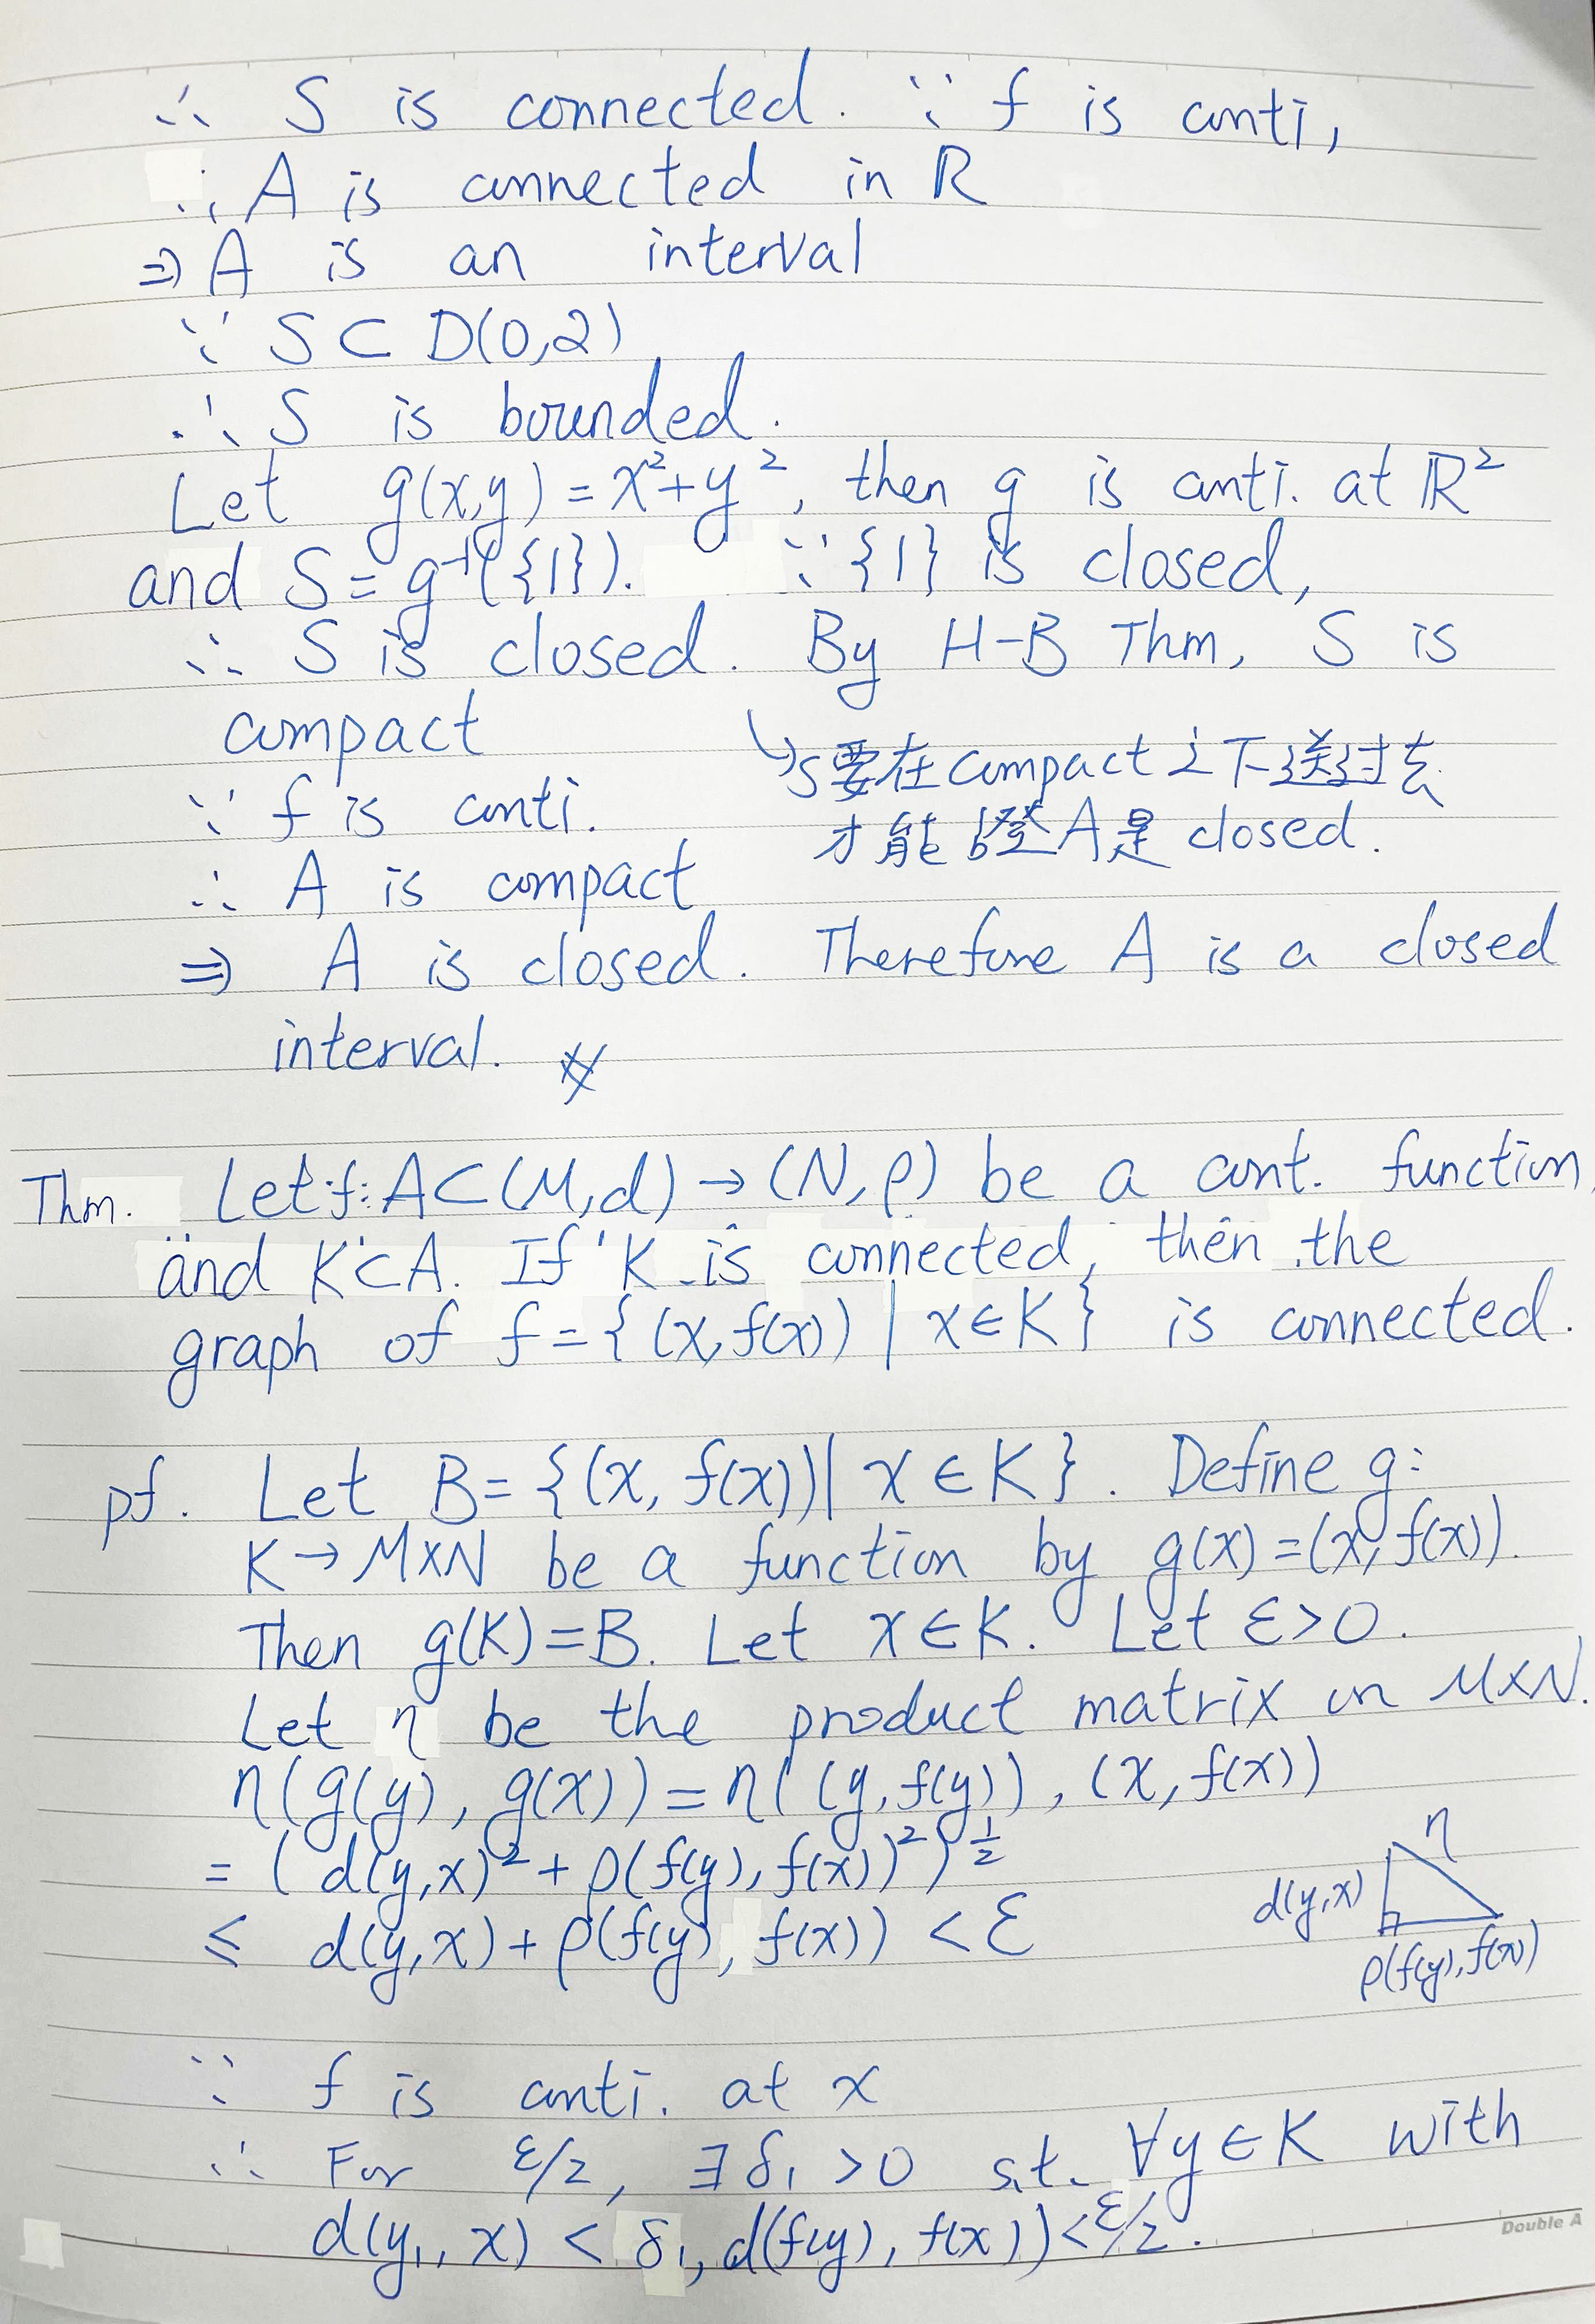 ∴ S is connected. ∵ f is conti,
∴ A is connected in R
⇒ A is an interval
∵ S ⊂ D(0,2)
∴ S is bounded.
Let g(x,y) = x²+y², then g is conti. at ℝ²
and S = g⁻¹({1}). ∵ {1} is closed,
∴ S is closed. By H-B Thm, S is
compact
↳ S要在compact之下送过去
才能證A是closed.
∵ f is conti.
∴ A is compact
⇒ A is closed. Therefore A is a closed
interval. ※
Thm. Let f: A⊂(M,d) → (N,ρ) be a cont. function,
and K⊂A. If K is connected, then the
graph of f = {(x,f(x)) | x∈K} is connected.
pf. Let B = {(x, f(x)) | x∈K}. Define g:
K → M×N be a function by g(x) = (x, f(x)).
Then g(K) = B. Let x∈K. Let ε>0.
Let η be the product matrix on M×N.
η(g(y), g(x)) = η((y,f(y)), (x,f(x))
= (d(y,x)² + ρ(f(y), f(x))²)^½
≤ d(y,x) + ρ(f(y), f(x)) < ε
η
d(y,x)
ρ(f(y),f(x))
∵ f is conti. at x
∴ For ε/2, ∃δ₁ >0 s.t. ∀y∈K with
d(y₁, x) < δ₁, d(f(y), f(x)) < ε/2.
Double A